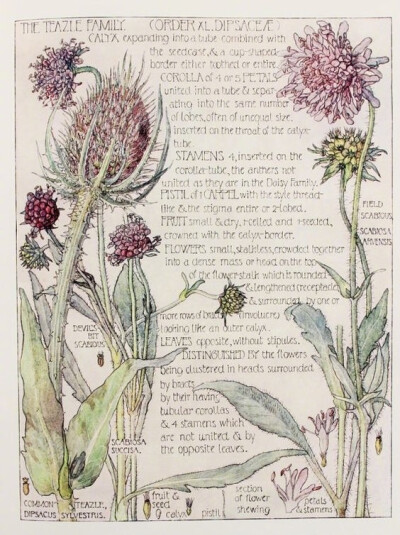 THE TEAZLE FAMILY. (ORDER XL. DIPSACEAE)
CALYX expanding into a tube combined with
the seedcase, & a cup-shaped
border either toothed or entire.
COROLLA of 4 or 5 PETALS
united into a tube & separ-
ating into the same number
of lobes, often of unequal size.
inserted on the throat of the calyx-
tube.
STAMENS 4, inserted on the
corolla-tube, the anthers not
united as they are in the Daisy Family.
PISTIL of 1 CARPEL with the style thread-
like & the stigma entire or 2-lobed.
FRUIT small & dry, 1-celled and 1-seeded,
crowned with the calyx-border.
FLOWERS small, stalkless, crowded together
into a dense mass or head on the top
of the flower-stalk which is rounded
& lengthened (receptacle)
& surrounded by one or
more rows of bracts (involucre)
looking like an outer calyx.
LEAVES opposite, without stipules.
DISTINGUISHED by the flowers
being clustered in heads surrounded
by bracts
by their having
tubular corollas
& 4 stamens which
are not united & by
the opposite leaves.
FIELD
SCABIOUS
SCABIOSA
ARVENSIS
DEVIL'S
BIT
SCABIOUS
SCABIOSA
SUCCISA.
COMMON TEAZLE,
DIPSACUS SYLVESTRIS.
fruit &
seed
& calyx
pistil
section
of flower
shewing
petals
& stamens